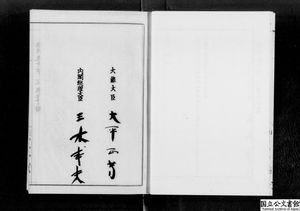 大蔵大臣 大平正芳
内閣総理大臣 三木武夫
国立公文書館
National Archives of Japan